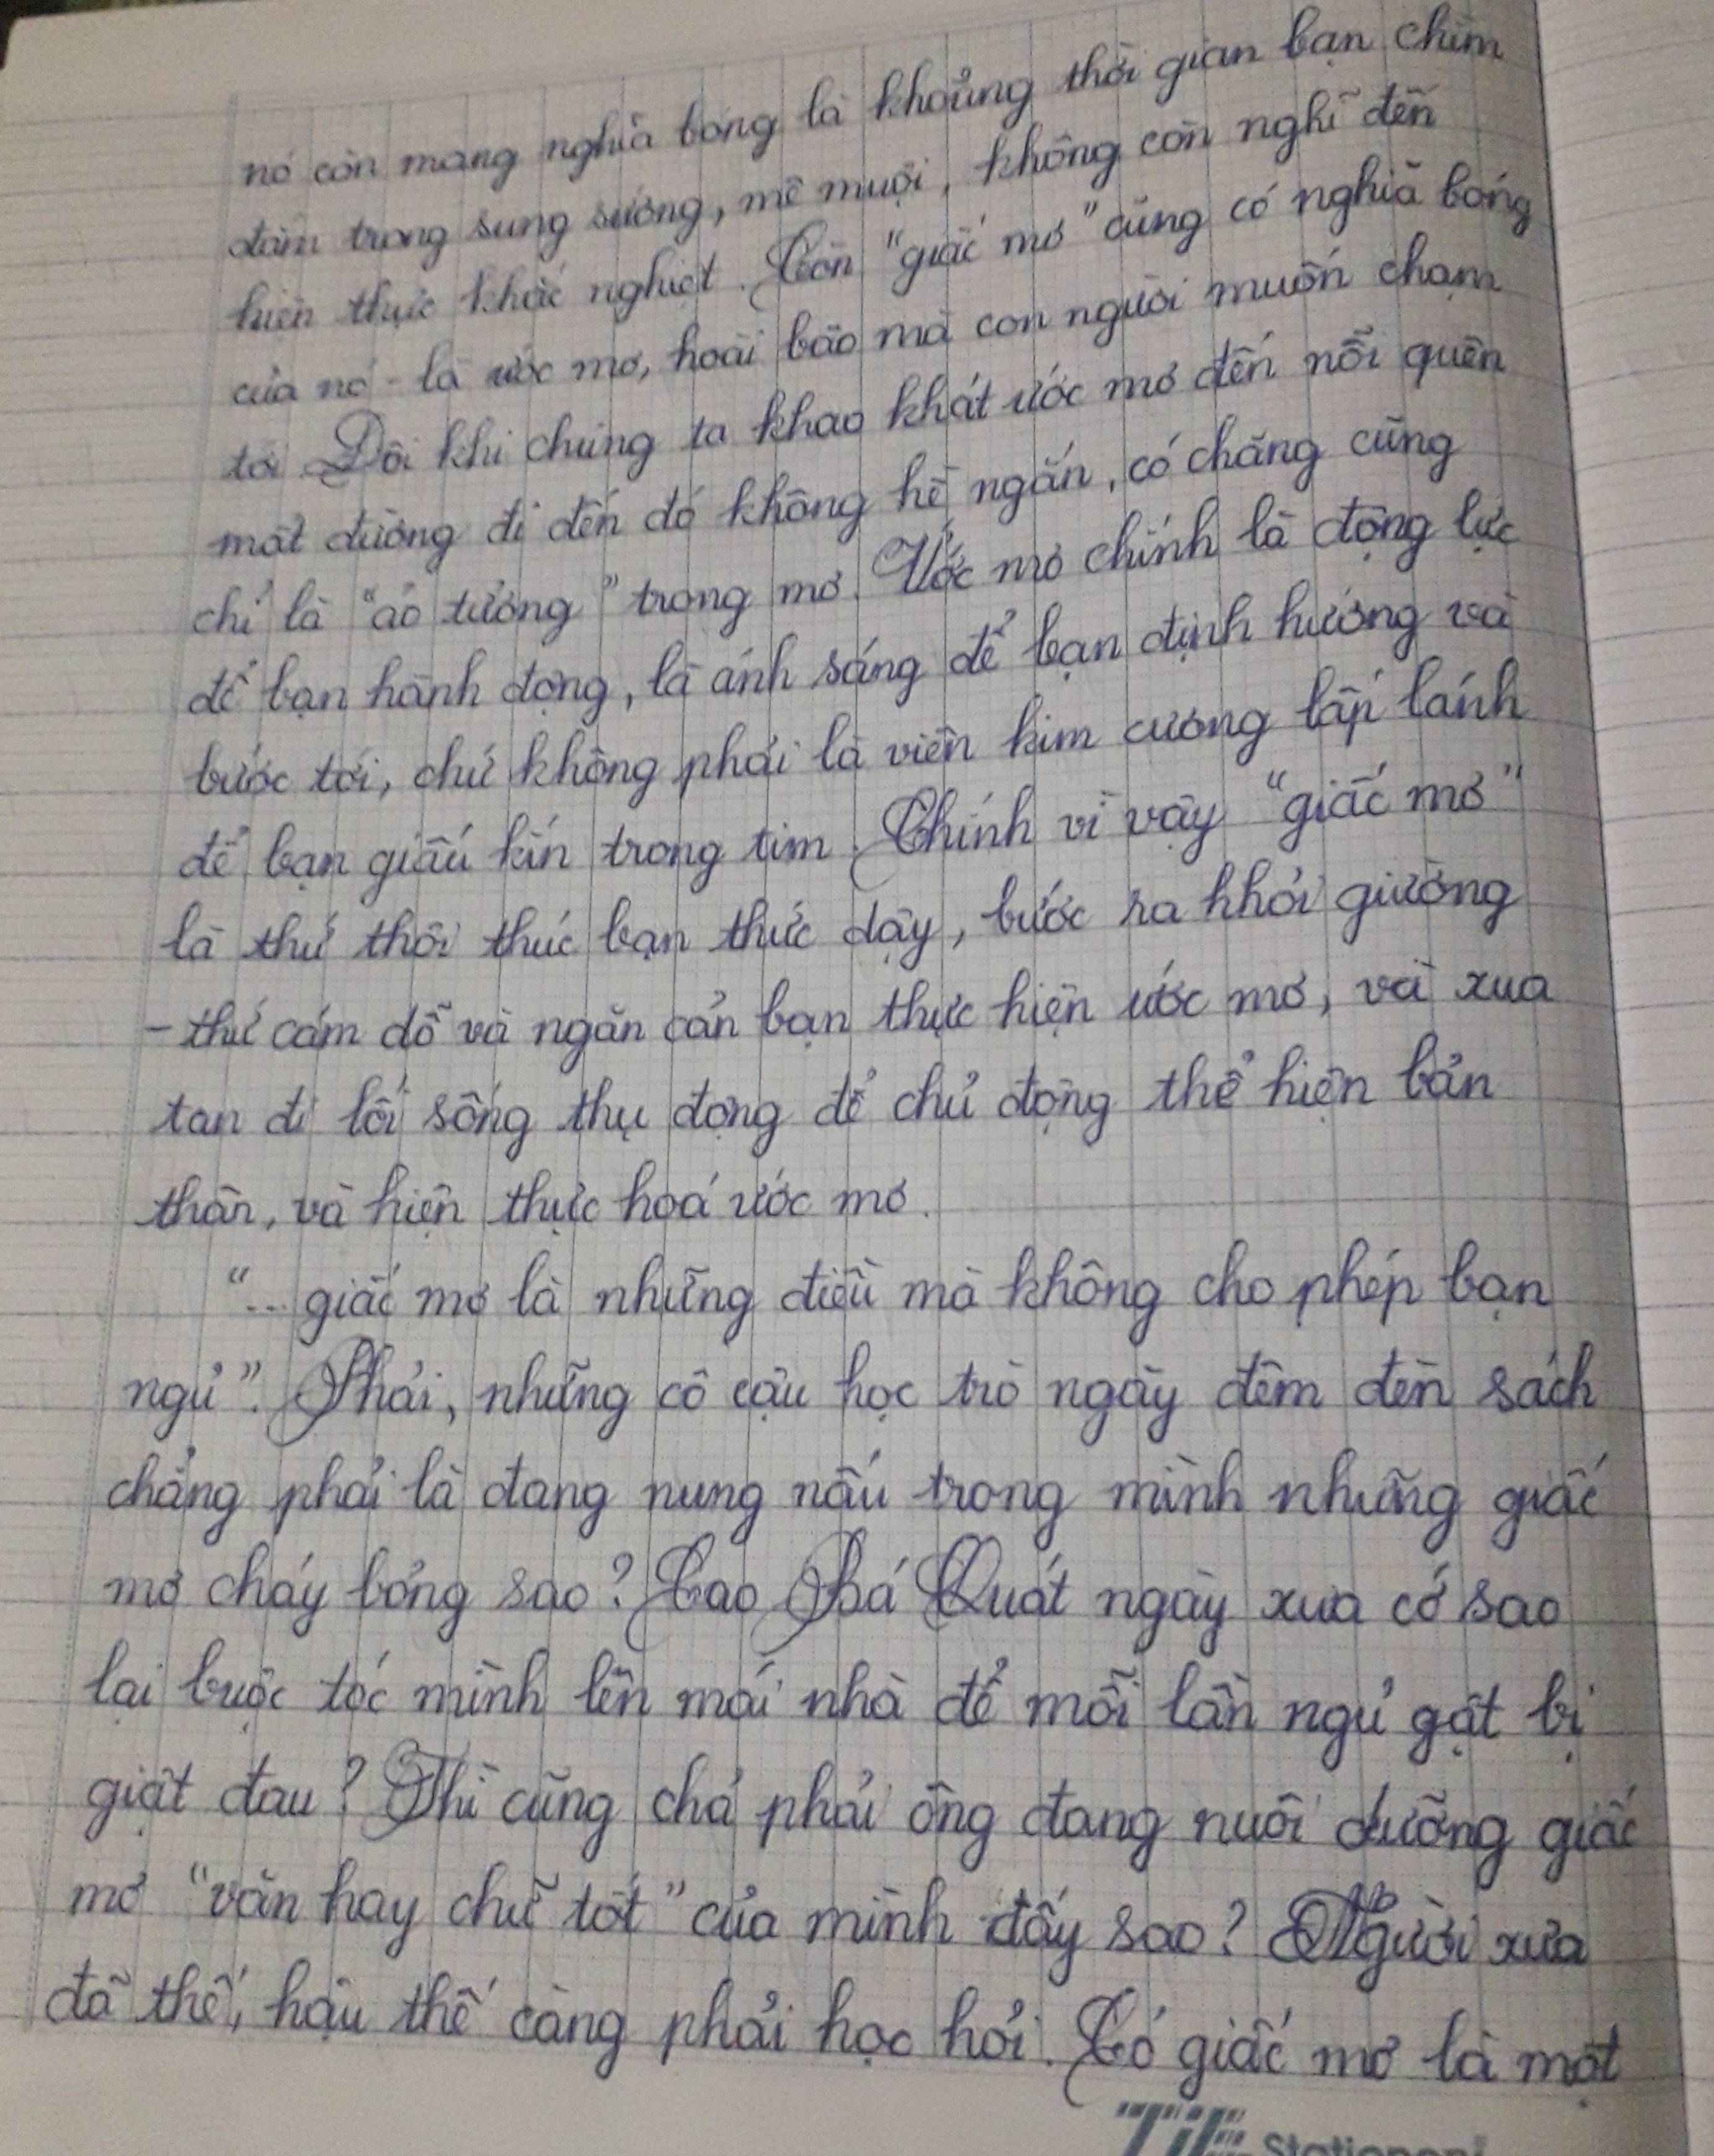 nó còn mang nghĩa bóng là khoảng thời gian bạn chìm
đắm trong sung sướng, mê muội, không còn nghĩ đến
hiện thực khắc nghiệt. Còn "giấc mơ" cũng có nghĩa bóng
của nó - là ước mơ, hoài bão mà con người muốn chạm
tới. Đôi khi chúng ta khao khát ước mơ đến nỗi quên
mất đường đi đến đó không hề ngắn, có chăng cũng
chỉ là "ảo tưởng" trong mơ. Ước mơ chính là động lực
để bạn hành động, là ánh sáng để bạn định hướng và
bước tới, chứ không phải là viên kim cương lấp lánh
để bạn giấu kín trong tim. Chính vì vậy "giấc mơ"
là thứ thôi thúc bạn thức dậy, bước ra khỏi giường
- thứ cám dỗ và ngăn cản bạn thực hiện ước mơ, và xua
tan đi lối sống thụ động để chủ động thể hiện bản
thân, và hiện thực hoá ước mơ.
"... giấc mơ là những điều mà không cho phép bạn
ngủ". Phải, những cô cậu học trò ngày đêm đèn sách
chẳng phải là đang nung nấu trong mình những giấc
mơ cháy bỏng sao? Cao Bá Quát ngày xưa cớ sao
lại buộc tóc mình lên mái nhà để mỗi lần ngủ gật bị
giật đau? Thì cũng chả phải ông đang nuôi dưỡng giấc
mơ "văn hay chữ tốt" của mình đấy sao? Người xưa
đã thế, hậu thế càng phải học hỏi. Có giấc mơ là một